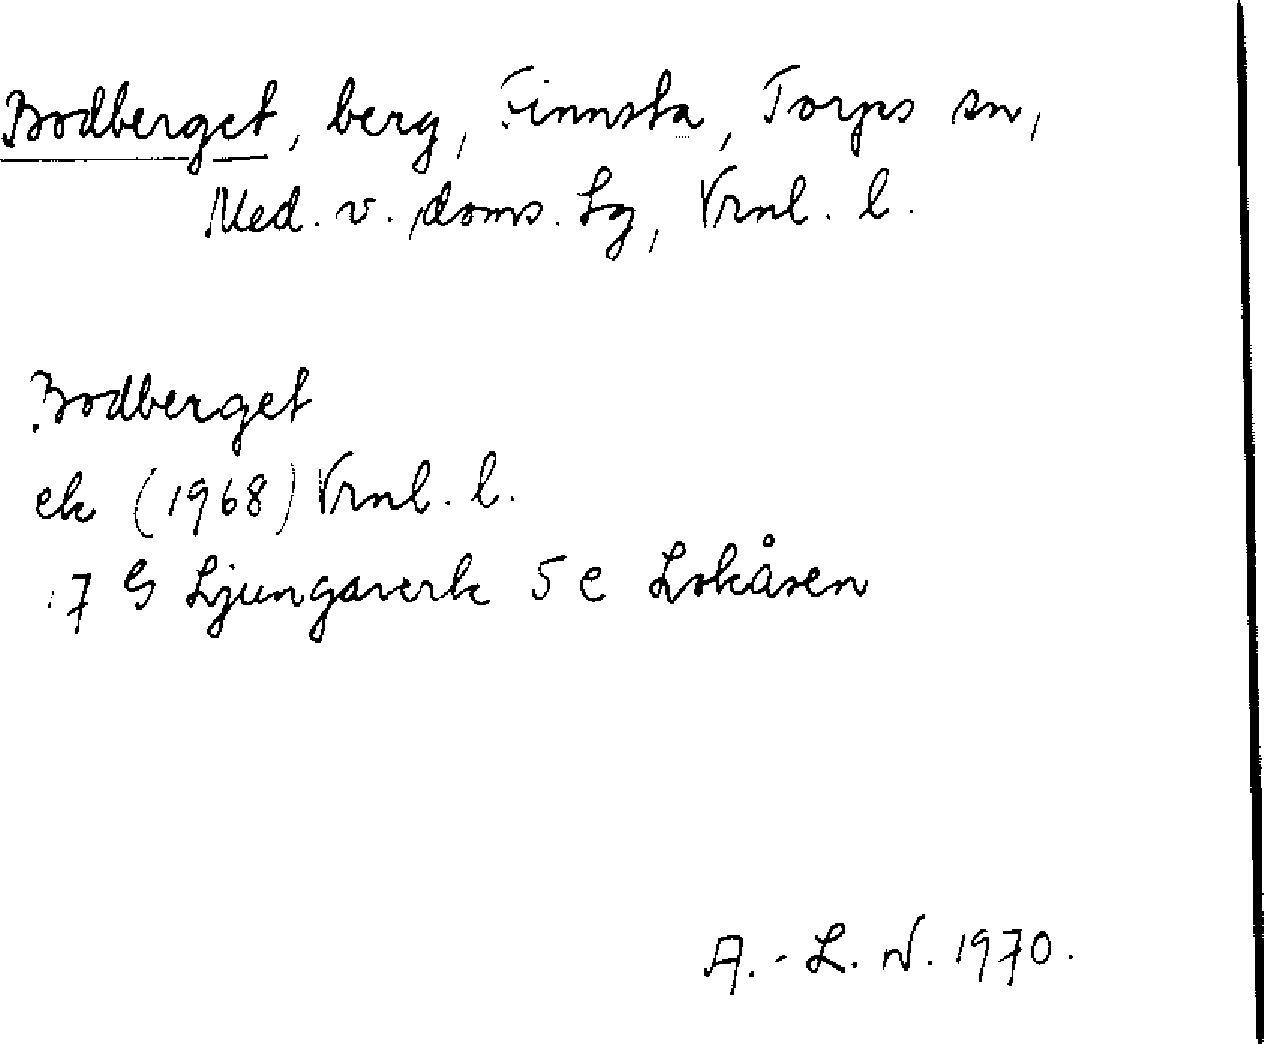 Bodberget, berg, Finnsta, Torps sn,
Med. v. doms. Lg, Vrnl. l.
Bodberget
ek (1968) Vrnl. l.
17 G Ljungaverk 5 e Lokåsen
A.-L. N. 1970.